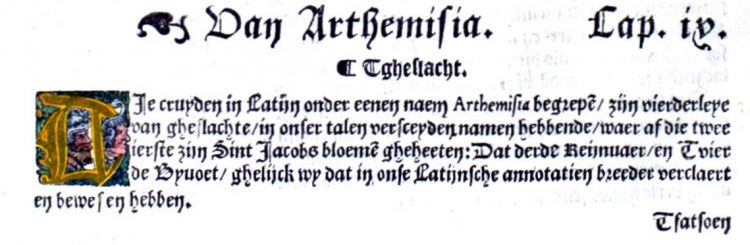 ☙ Van Arthemisia. Cap. ix.
¶ Tgheslacht.
DJe cruyden in Latijn onder eenen naem Arthemisia begrepē/ zijn vierderleye
van gheslachte/ in onser talen versceyden namen hebbende/ waer af die twee
ierste zijn Sint Jacobs bloemē gheheeten: Dat derde Reijnuaer/ en Tvier
de Byuoet/ ghelijck wy dat in onse Latijnsche annotatien breeder verclaert
en bewesen hebben.
Tfatsoen